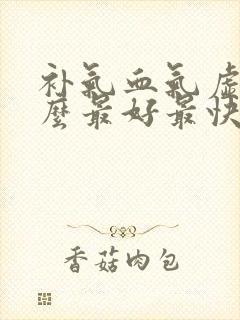 补气血气虚
麼最好最快
香菇肉包